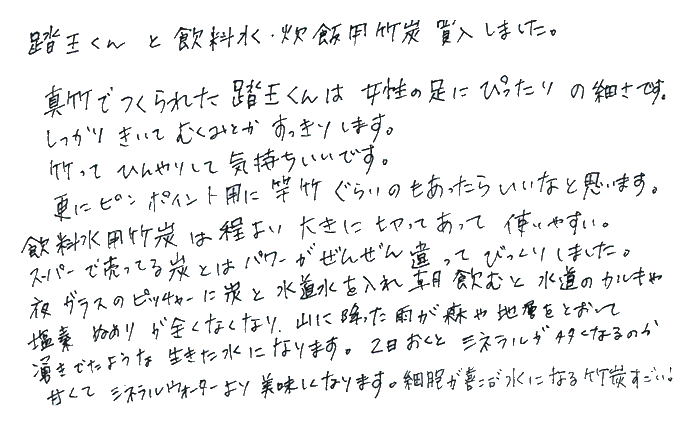 踏王くん と 飲料水・炊飯用竹炭 買入しました。
真竹でつくられた 踏王くんは 女性の足に ぴったり の細さです。
しっかり きいて むくみとか すっきりします。
竹って ひんやりして 気持ちいいです。
更にピン ポイント用に 竿竹 ぐらいのもあったらいいなと思います。
飲料水用竹炭 は 程よい 大きに 切ってあって 使いやすい。
スーパーで売ってる 炭とは パワーが ぜんぜん 違って びっくりしました。
夜 ガラスのピッチャーに 炭と 水道水を入れ 朝 飲むと 水道のカルキや
塩素 ぬめり が全くなくなり、山に 降った 雨が 森や 地層をとおって
湧きでたような 生きた 水になります。2日おくと ミネラルが 多くなるのか
甘くて ミネラルウォーターより 美味しくなります。細胞が喜こぶ水になる 竹炭すごい!